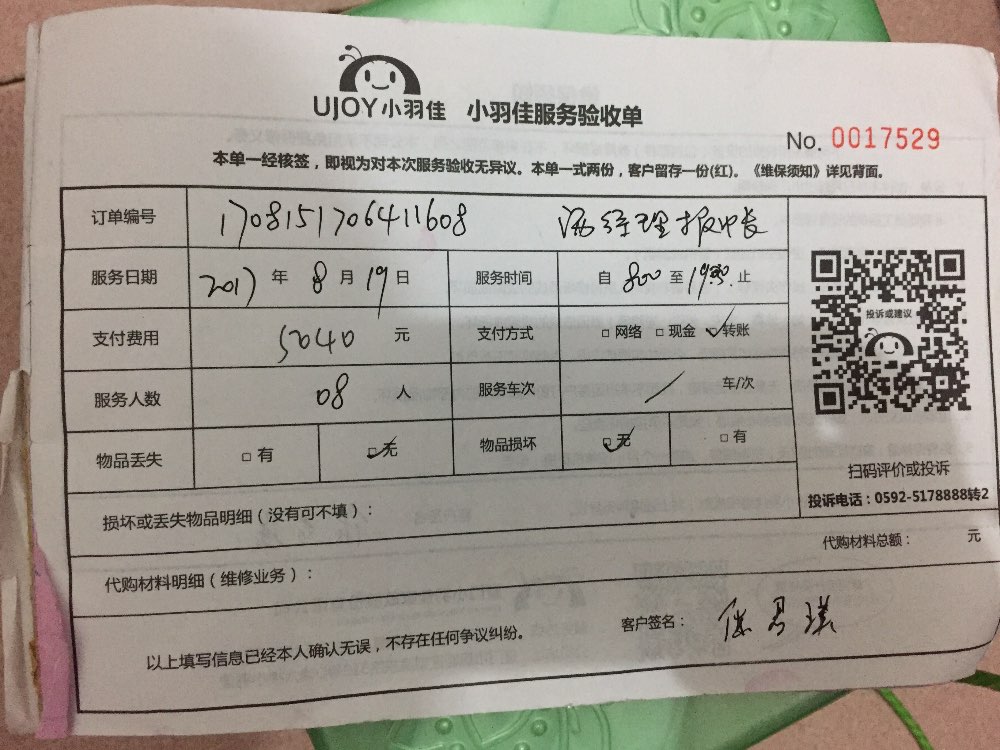 UJOY小羽佳 小羽佳服务验收单
No. 0017529
本单一经核签，即视为对本次服务验收无异议。本单一式两份，客户留存一份(红)。《维保须知》详见背面。
订单编号 1708151706411608
服务日期 2017 年 8 月 19 日 服务时间 自 800 至 1930 止
支付费用 5040 元 支付方式 □网络 □现金 ☑转账
服务人数 08 人 服务车次 / 车/次
物品丢失 □有 ☑无 物品损坏 ☑无 □有
投诉或建议
扫码评价或投诉
投诉电话：0592-5178888转2
损坏或丢失物品明细（没有可不填）：
代购材料总额： 元
代购材料明细（维修业务）：
以上填写信息已经本人确认无误，不存在任何争议纠纷。 客户签名：